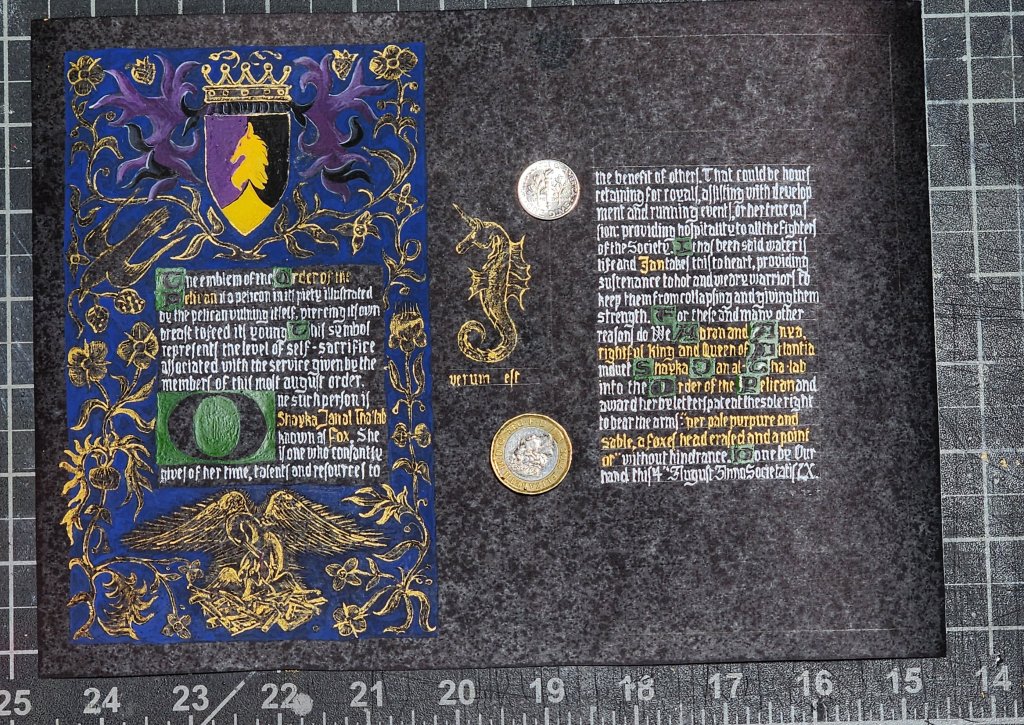 The emblem of the Order of the
Pelican is a pelican in its piety illustrated
by the pelican vulning itself, piercing its own
breast to feed its young. This symbol
represents the level of self-sacrifice
associated with the service given by the
members of this most august order.
One such person is
Shayka Jan al Tha'lab
known as Fox. She
is one who constantly
gives of her time, talents and resources to
verum est
the benefit of others. That could be hours
retaining for royals, assisting with develop
ment and running events, or her true pas
sion: providing hospitality to all the fighters
of the Society. It has been said water is
life and Jan takes this to heart, providing
sustenance to hot and weary warriors to
keep them from collapsing and giving them
strength. For these and many other
reasons do We Abran and Anya,
rightful King and Queen of Atlantia
induct Shayka Jan al Tha'lab
into the Order of the Pelican and
award her by letters patent the sole right
to bear the arms: "per pale purpure and
sable, a fox's head erased and a point
or" without hindrance. Done by Our
hand this 4th August Anno Societatis LX.
25 24 23 22 21 20 19 18 17 16 15 14